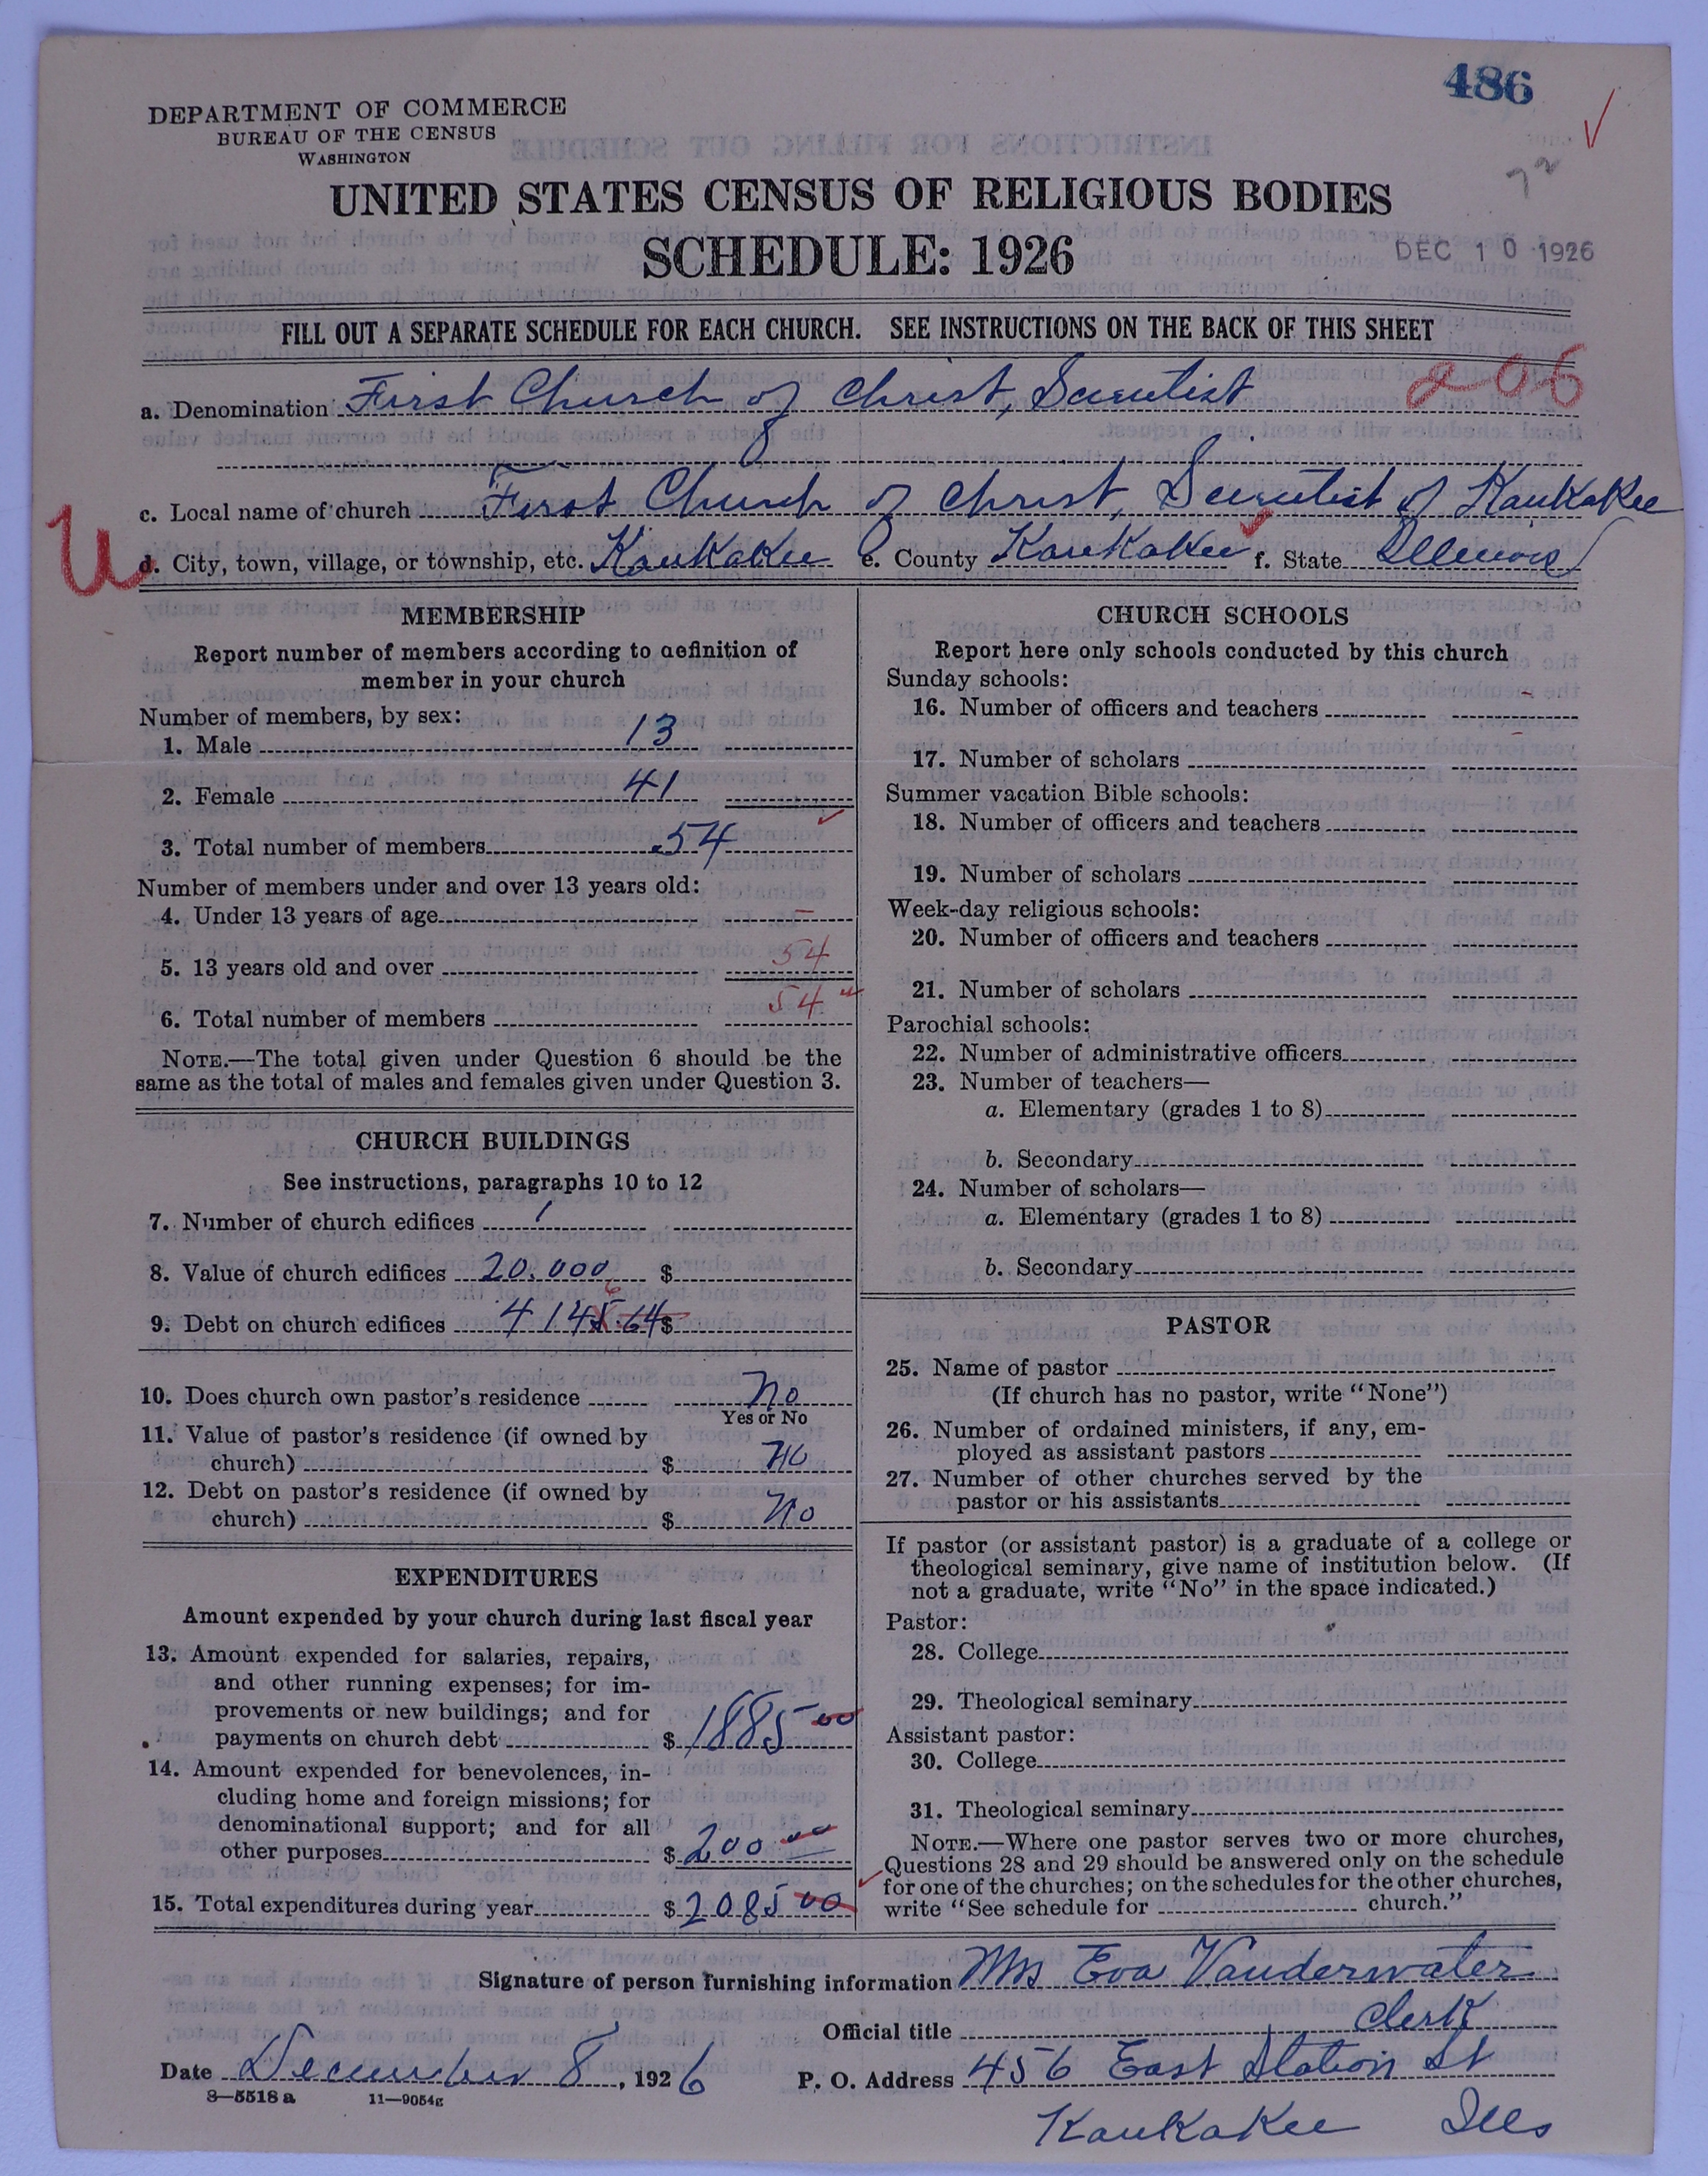 486
DEPARTMENT OF COMMERCE
BUREAU OF THE CENSUS
WASHINGTON
UNITED STATES CENSUS OF RELIGIOUS BODIES
SCHEDULE: 1926
DEC 10 1926
FILL OUT A SEPARATE SCHEDULE FOR EACH CHURCH. SEE INSTRUCTIONS ON THE BACK OF THIS SHEET
206
a. Denomination First Church of Christ, Scientist
c. Local name of church First Church of Christ, Scientist of Kankakee
U
d. City, town, village, or township, etc. Kankakee e. County Kankakee f. State Illinois
MEMBERSHIP
Report number of members according to definition of
member in your church
Number of members, by sex:
1. Male 13
2. Female 41
3. Total number of members 54
Number of members under and over 13 years old:
4. Under 13 years of age –
5. 13 years old and over 54
6. Total number of members 54
NOTE.—The total given under Question 6 should be the
same as the total of males and females given under Question 3.
CHURCH BUILDINGS
See instructions, paragraphs 10 to 12
7. Number of church edifices 1
8. Value of church edifices 20,000 $
6
9. Debt on church edifices 4145.64 $
10. Does church own pastor's residence No
Yes or No
11. Value of pastor's residence (if owned by
church) $ No
12. Debt on pastor's residence (if owned by
church) $ No
EXPENDITURES
Amount expended by your church during last fiscal year
13. Amount expended for salaries, repairs,
and other running expenses; for im-
provements or new buildings; and for
payments on church debt $ 1885 00
14. Amount expended for benevolences, in-
cluding home and foreign missions; for
denominational support; and for all
other purposes $ 200 00
15. Total expenditures during year $ 2085 00
CHURCH SCHOOLS
Report here only schools conducted by this church
Sunday schools:
16. Number of officers and teachers –
17. Number of scholars –
Summer vacation Bible schools:
18. Number of officers and teachers
19. Number of scholars
Week-day religious schools:
20. Number of officers and teachers
21. Number of scholars
Parochial schools:
22. Number of administrative officers
23. Number of teachers—
a. Elementary (grades 1 to 8)
b. Secondary
24. Number of scholars—
a. Elementary (grades 1 to 8)
b. Secondary
PASTOR
25. Name of pastor
(If church has no pastor, write "None")
26. Number of ordained ministers, if any, em-
ployed as assistant pastors
27. Number of other churches served by the
pastor or his assistants
If pastor (or assistant pastor) is a graduate of a college or
theological seminary, give name of institution below. (If
not a graduate, write "No" in the space indicated.)
Pastor:
28. College
29. Theological seminary
Assistant pastor:
30. College
31. Theological seminary
NOTE.—Where one pastor serves two or more churches,
Questions 28 and 29 should be answered only on the schedule
for one of the churches; on the schedules for the other churches,
write "See schedule for church."
Signature of person furnishing information Mrs Eva Vanderwater
Official title Clerk
Date December 8, 1926 P. O. Address 456 East Station St
8—5518 a 11—9054g
Kankakee Ills